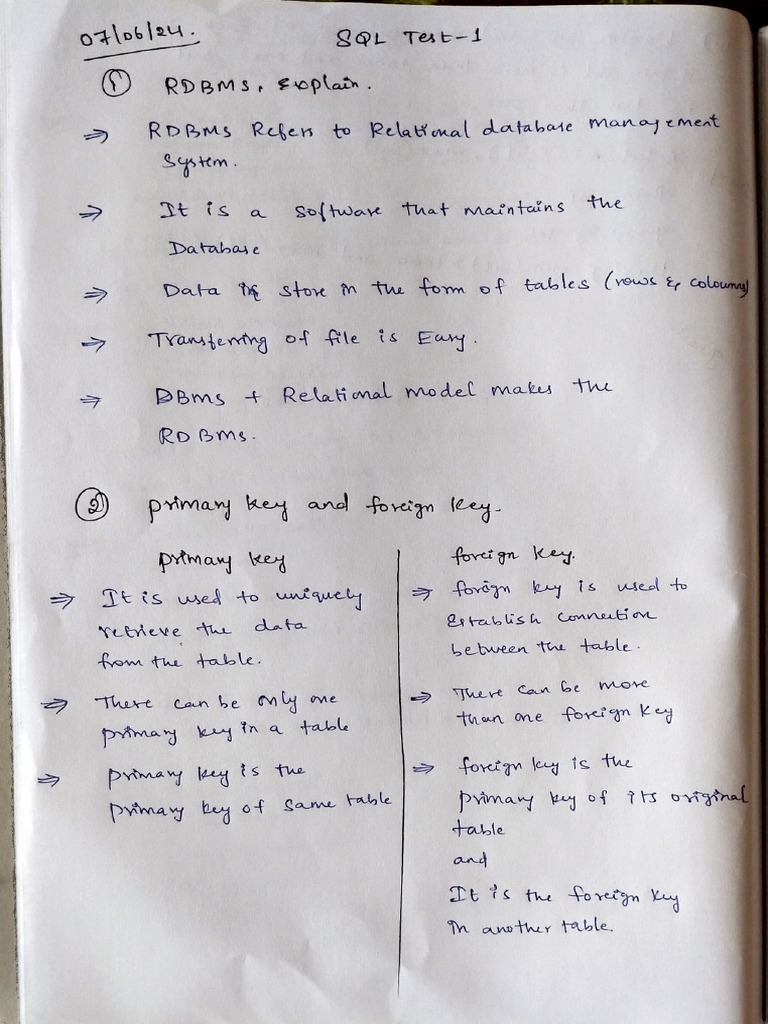 07/06/24.
SQL Test-1
① RDBMS, Explain.
⇒ RDBMS Refers to Relational database management
System.
⇒ It is a software that maintains the
Database
⇒ Data is store in the form of tables (rows & coloumns)
⇒ Transferring of file is Easy.
⇒ DBMS + Relational model makes the
RDBMS.
② primary key and foreign key.
primary key
⇒ It is used to uniquely
retrieve the data
from the table.
⇒ There can be only one
primary key in a table
⇒ primary key is the
primary key of same table
foreign key.
⇒ foreign key is used to
Establish connection
between the table.
⇒ There can be more
than one foreign key
⇒ foreign key is the
primary key of its original
table
and
It is the foreign key
in another table.